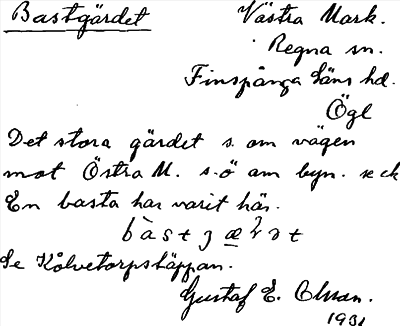 Bastgärdet
Västra Mark.
Regna sn.
Finspånga läns hd.
Ögl
Det stora gärdet s. om vägen
mot Östra M. s.ö om byn. se ek
En basta har varit här.
Se Kolvetorpstäppan.
Gustaf E. Olsson.
1931